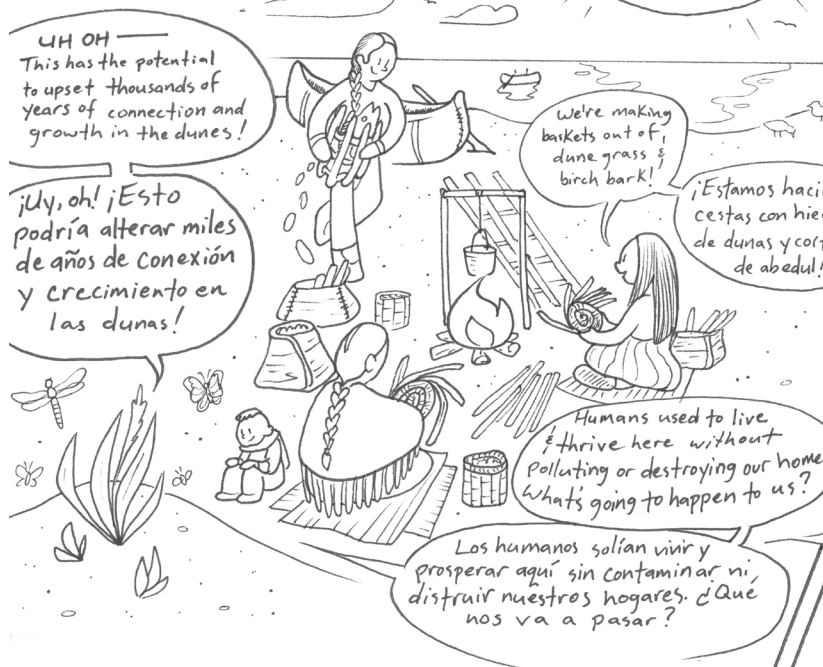 UH OH —
This has the potential
to upset thousands of
years of connection and
growth in the dunes!
¡Uy, oh! ¡Esto
podría alterar miles
de años de conexión
y crecimiento en
las dunas!
We're making
baskets out of
dune grass &
birch bark!
¡Estamos haci
cestas con hie
de dunas y cor
de abedul!
Humans used to live
& thrive here without
polluting or destroying our home
What's going to happen to us?
Los humanos solían vivir y
prosperar aquí sin contaminar ni
distruir nuestros hogares. ¿Qué
nos va a pasar?